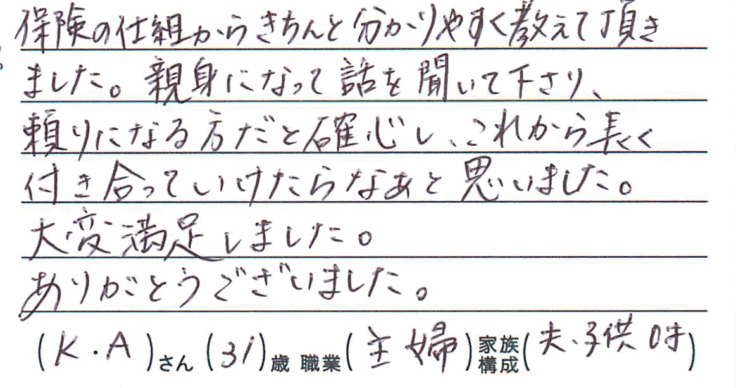 保険の仕組からきちんと分かりやすく教えて頂き
ました。親身になって話を聞いて下さり、
頼りになる方だと確心し、これから長く
付き合っていけたらなあと思いました。
大変満足しました。
ありがとうございました。
(K.A)さん(31)歳 職業(主婦)家族構成(夫、子供0才)